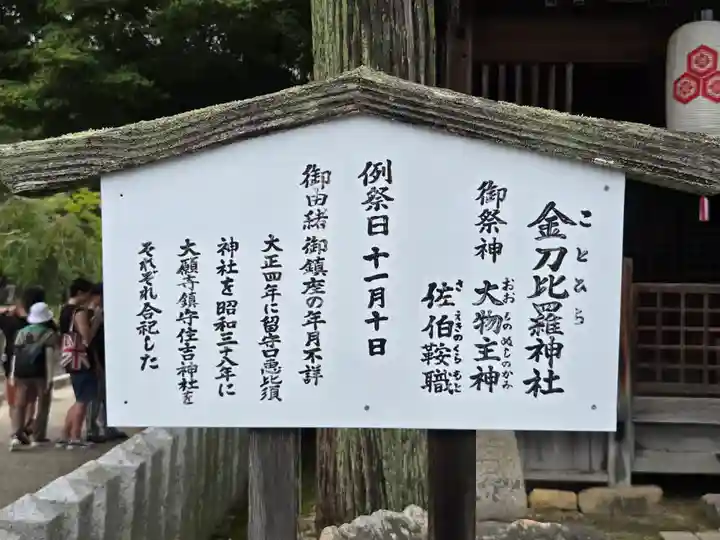 金刀比羅神社
ことひら
御祭神 大物主神
おおものぬしのかみ
佐伯鞍職
さえきのくらもと
例祭日 十一月十日
御由緒 御鎮座の年月不詳
大正四年に留守口恵比須
神社を昭和三十八年に
大願寺鎮守住吉神社を
それぞれ合祀した